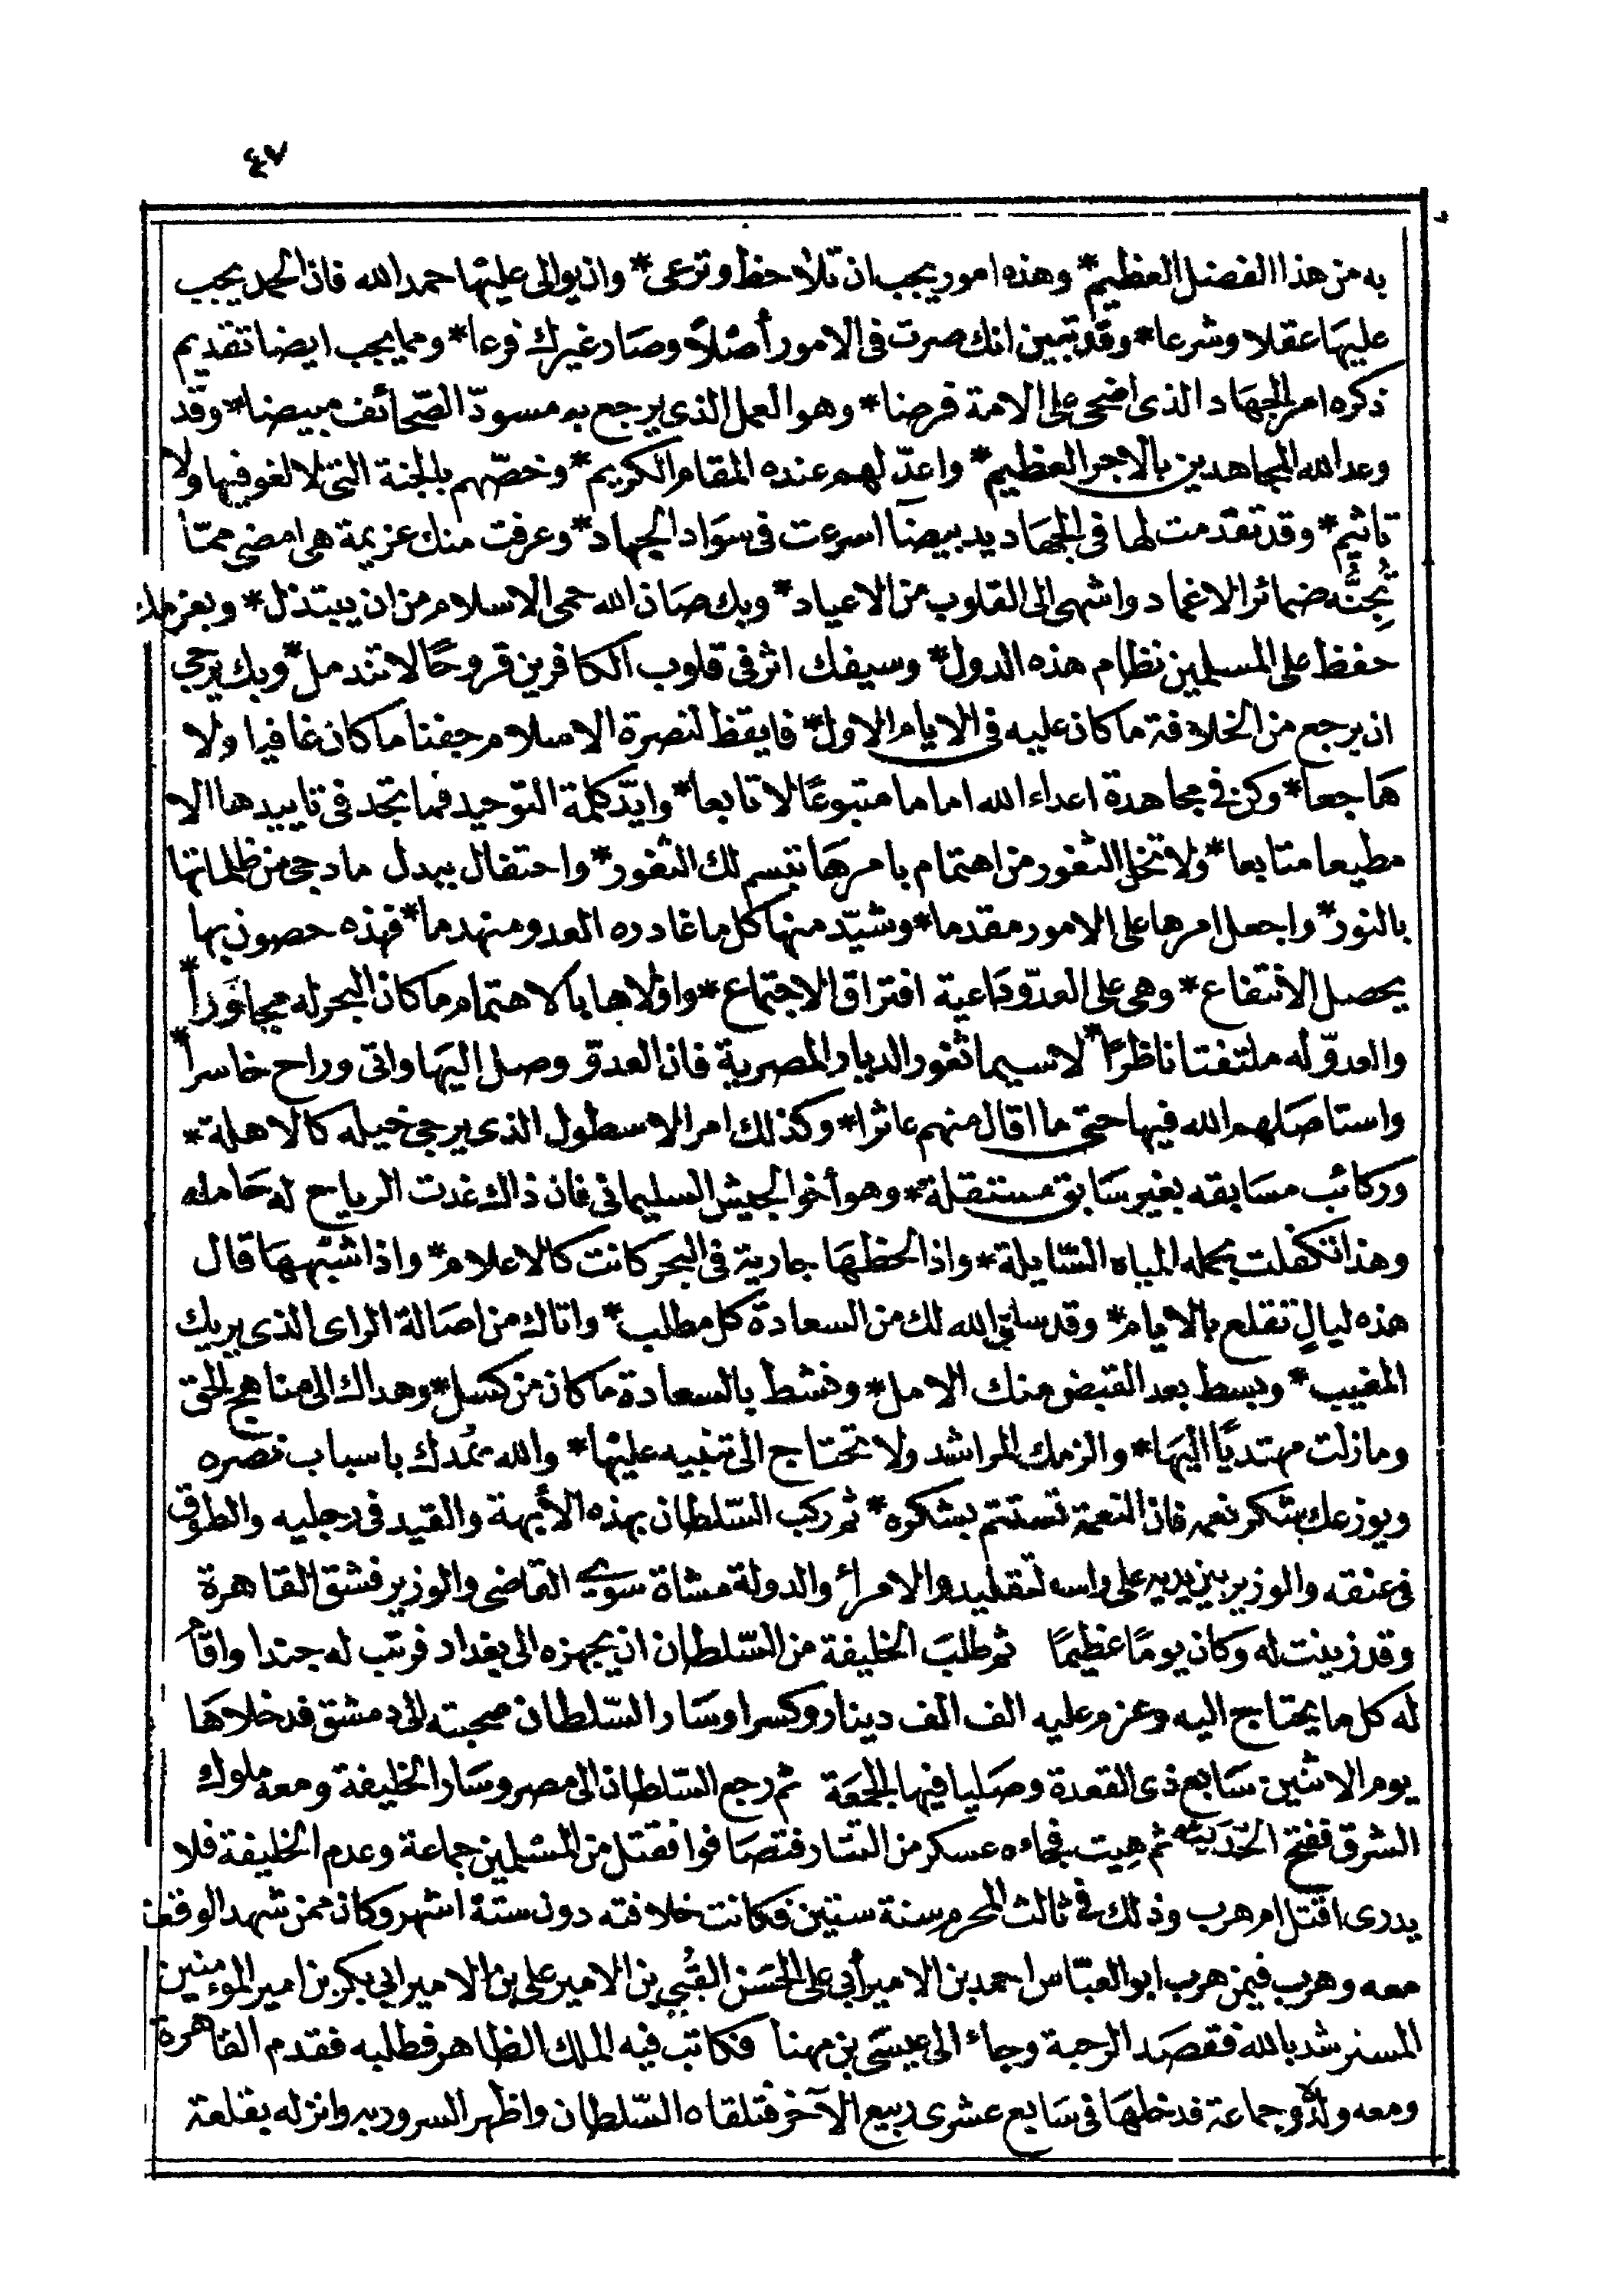 ٤٧
به من هذا الفضل العظيم * وهذه امور يجب ان تلاحظ وترعى * وان يوالى عليها حمد الله فان الحمد يجب
عليها عقلا وشرعا * وقد تبين انك صرت فى الامور أصْلاً وصَار غيرك فرعا * ومما يجب ايضا تقديم
ذكره امر الجهاد الذى اضحى على الامة فرضا * وهو العمل الذى يرجع به مسودّ الصّحائف مبيضا * وقد
وعد الله المجاهدين بالاجر العظيم * واعدّ لهم عنده المقام الكريم * وخصّهم بالجنة التى لا لغو فيها ولا
تاثيم * وقد تقدمت لها فى الجهاد يد بيضآ اسرعت فى سَواد الجهاد * وعرفت منك عزيمة هى امضى ممّا
تُجِنُّه ضمائر الاغماد واشهى الى القلوب من الاعياد * وبك صَان الله حمى الاسلام من ان يبتذل * وبعزمك
حفظ على المسلمين نظام هذه الدول * وسيفك اثر فى قلوب الكافرين قروحًا لا تندمل * وبك يرجى
ان يرجع من الخلافة ما كان عليه فى الايام الاول * فايقظ لنصرة الاسلام جفنا ما كان غافيا ولا
هَاجعا * وكن فى مجاهدة اعداء الله اماما متبوعًا لا تابعا * وايّد كلمة التوحيد فما تجد فى تاييدها الا
مطيعا متابعا * ولا تخل الثغور من اهتمام بامرهَا تبتسم لك الثغور * واحتفال يبدل ما دجى من ظلماتها
بالنور * واجعل امرها على الامور مقدما * وشيّد منها كل ما غادره العدو منهدما * فهذه حصون بها
يحصل الانتفاع * وهى على العدوّ دَاعية افتراق الاجتماع * واولاها بالاهتمام ما كان البحر له مجاوَراً *
والعدوّ له ملتفتا ناظرًا * لا سيما ثغور الديار المصرية فان العدوّ وصل اليهَا واتى وراح خاسراً *
واستاصَلهم الله فيها حتى ما اقال منهم عاثرا * وكذلك امر الاسطول الذى يرجى خيله كالاهلة *
وركائب مسَابقه بغير سَابق مستقلة * وهو أخو الجيش السليمانى فان ذاك غدت الرياح له حَامله
وهذا تكفلت بحمله المياه السّايلة * واذا لحظهَا جارية فى البحر كانت كالاعلام * واذا شبّههَا قال
هذه ليالٍ تقلع بالايام * وقد سنى الله لك من السعادة كل مطلب * واتاك من اصَالة الراى الذى يريك
المغيب * وبسط بعد القبض منك الامل * ونشط بالسعادة ما كان من كسل * وهداك الى مناهج الحق
وما زلت مهتديًا اليهَا * والزمك المراشد ولا تحتاج الى تنبيه عليْها * والله يمُدك باسباب نصره
ويوزعك بشكر نعمه فان النعمة تستتم بشكره * ثم ركب السّلطان بهذه الأبهة والقيد فى رجليه والطوق
فى عنقه والوزير بين يديه على راسه لتقليد والامراء والدولة مشاة سوى القاضى والوزير فشق القاهرة
وقد زينت له وَكان يومًا عظيمًا ثم طلبَ الخليفة من السّلطان ان يجهزه الى بغداد فرتب له جندا واقاَ
له كل ما يحتاج اليه وعزم عليه الف الف دينار وكسرا وسَار السّلطان صحبته الى دمشق فدخلاهَا
يوم الاثنين سَابع ذى القعدة وصَليا فيها الجمعَة ثم رجع السّلطان الى مصر وسَار الخليفة ومعه ملوك
الشرق ففتح الحَديثه ثم هِيت فجاءه عسكر من التتار فتصَافوا فقتل من المسْلمين جماعة وعدم الخليفة فلا
يدرى اقتل ام هرب وذلك فى ثالث المحرم سنة ستين فكانت خلافته دون ستة اشهر وكان ممن شهد الوقعة
معه وهرب فيمن هرب ابو العبّاس احمد بن الامير أبي على الحَسَن القبُّي بن الامير على بن الامير ابي بكر بن امير المؤمنين
المسترشد بالله فقصَد الرحبة وجاء الى عيسَى بن مهنا فكاتب فيه الملك الظاهر فطلبه فقدم القاهرة
ومعه ولدٌ وجماعة فدخلهَا فى سَابع عشرى ربيع الآخر فتلقاه السّلطان واظهر السرور به وانزله بقلعة